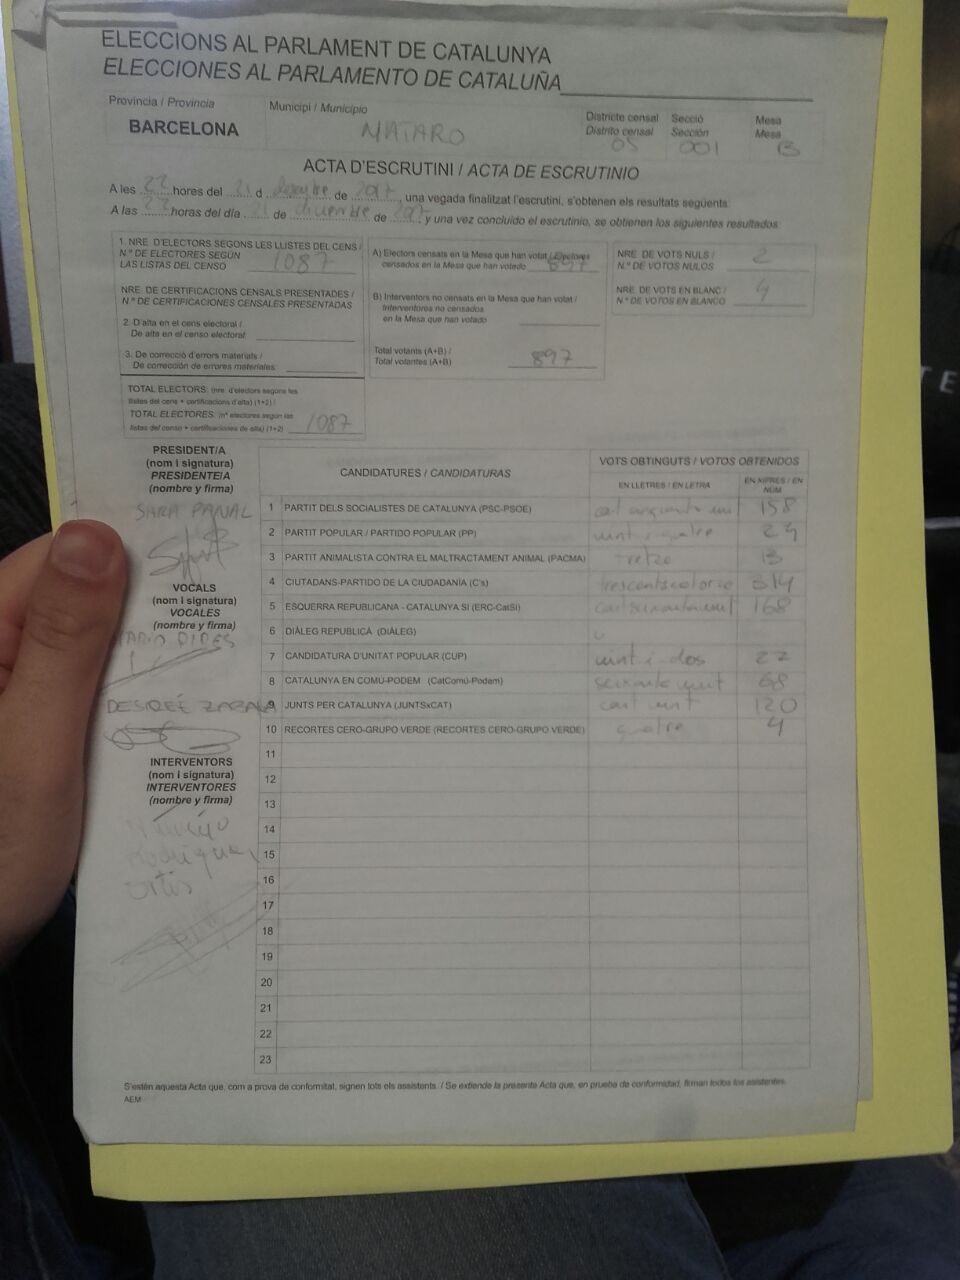 ELECCIONS AL PARLAMENT DE CATALUNYA
ELECCIONES AL PARLAMENTO DE CATALUÑA
Provincia / Provincia
BARCELONA
Municipi / Municipio
MATARO
Districte censal
Distrito censal
05
Secció
Sección
001
Mesa
Mesa
B
ACTA D'ESCRUTINI / ACTA DE ESCRUTINIO
A les 22 hores del 21 d desembre de 2017, una vegada finalitzat l'escrutini, s'obtenen els resultats següents:
A las 22 horas del día 21 de diciembre de 2017 y una vez concluido el escrutinio, se obtienen los siguientes resultados:
1. NRE. D'ELECTORS SEGONS LES LLISTES DEL CENS /
N.º DE ELECTORES SEGÚN
LAS LISTAS DEL CENSO 1087
NRE. DE CERTIFICACIONS CENSALS PRESENTADES /
N.º DE CERTIFICACIONES CENSALES PRESENTADAS
2. D'alta en el cens electoral /
De alta en el censo electoral:
3. De correcció d'errors materials /
De corrección de errores materiales:
TOTAL ELECTORS: (nre. d'electors segons les
llistes del cens + certificacions d'alta) (1+2) /
TOTAL ELECTORES: (nº electores según las
listas del censo + certificaciones de alta) (1+2) 1087
A) Electors censats en la Mesa que han votat / Electores
censados en la Mesa que han votado 897
B) Interventors no censats en la Mesa que han votat /
Interventores no censados
en la Mesa que han votado
Total votants (A+B) /
Total votantes (A+B) 897
NRE. DE VOTS NULS /
N.º DE VOTOS NULOS 2
NRE. DE VOTS EN BLANC /
N.º DE VOTOS EN BLANCO 4
PRESIDENT/A
(nom i signatura)
PRESIDENTE/A
(nombre y firma)
SARA PANAL
VOCALS
(nom i signatura)
VOCALES
(nombre y firma)
DESIREÉ ZABALA
INTERVENTORS
(nom i signatura)
INTERVENTORES
(nombre y firma)
Rodriguez
Ortis
CANDIDATURES / CANDIDATURAS
VOTS OBTINGUTS / VOTOS OBTENIDOS
EN LLETRES / EN LETRA
EN XIFRES / EN NÚM
1 PARTIT DELS SOCIALISTES DE CATALUNYA (PSC-PSOE) cent cinquanta vuit 158
2 PARTIT POPULAR / PARTIDO POPULAR (PP) vint i quatre 24
3 PARTIT ANIMALISTA CONTRA EL MALTRACTAMENT ANIMAL (PACMA) tretze 13
4 CIUTADANS-PARTIDO DE LA CIUDADANÍA (C's) trescents catorce 314
5 ESQUERRA REPUBLICANA - CATALUNYA SI (ERC-CatSí) cent seixanta vuit 168
6 DIÀLEG REPUBLICÀ (DIÀLEG)
7 CANDIDATURA D'UNITAT POPULAR (CUP) vint i dos 22
8 CATALUNYA EN COMÚ-PODEM (CatComú-Podem) seixanta vuit 68
9 JUNTS PER CATALUNYA (JUNTSxCAT) cent vint 120
10 RECORTES CERO-GRUPO VERDE (RECORTES CERO-GRUPO VERDE) quatre 4
11
12
13
14
15
16
17
18
19
20
21
22
23
S'estén aquesta Acta que, com a prova de conformitat, signen tots els assistents. / Se extiende la presente Acta que, en prueba de conformidad, firman todos los asistentes.
AEM
TE